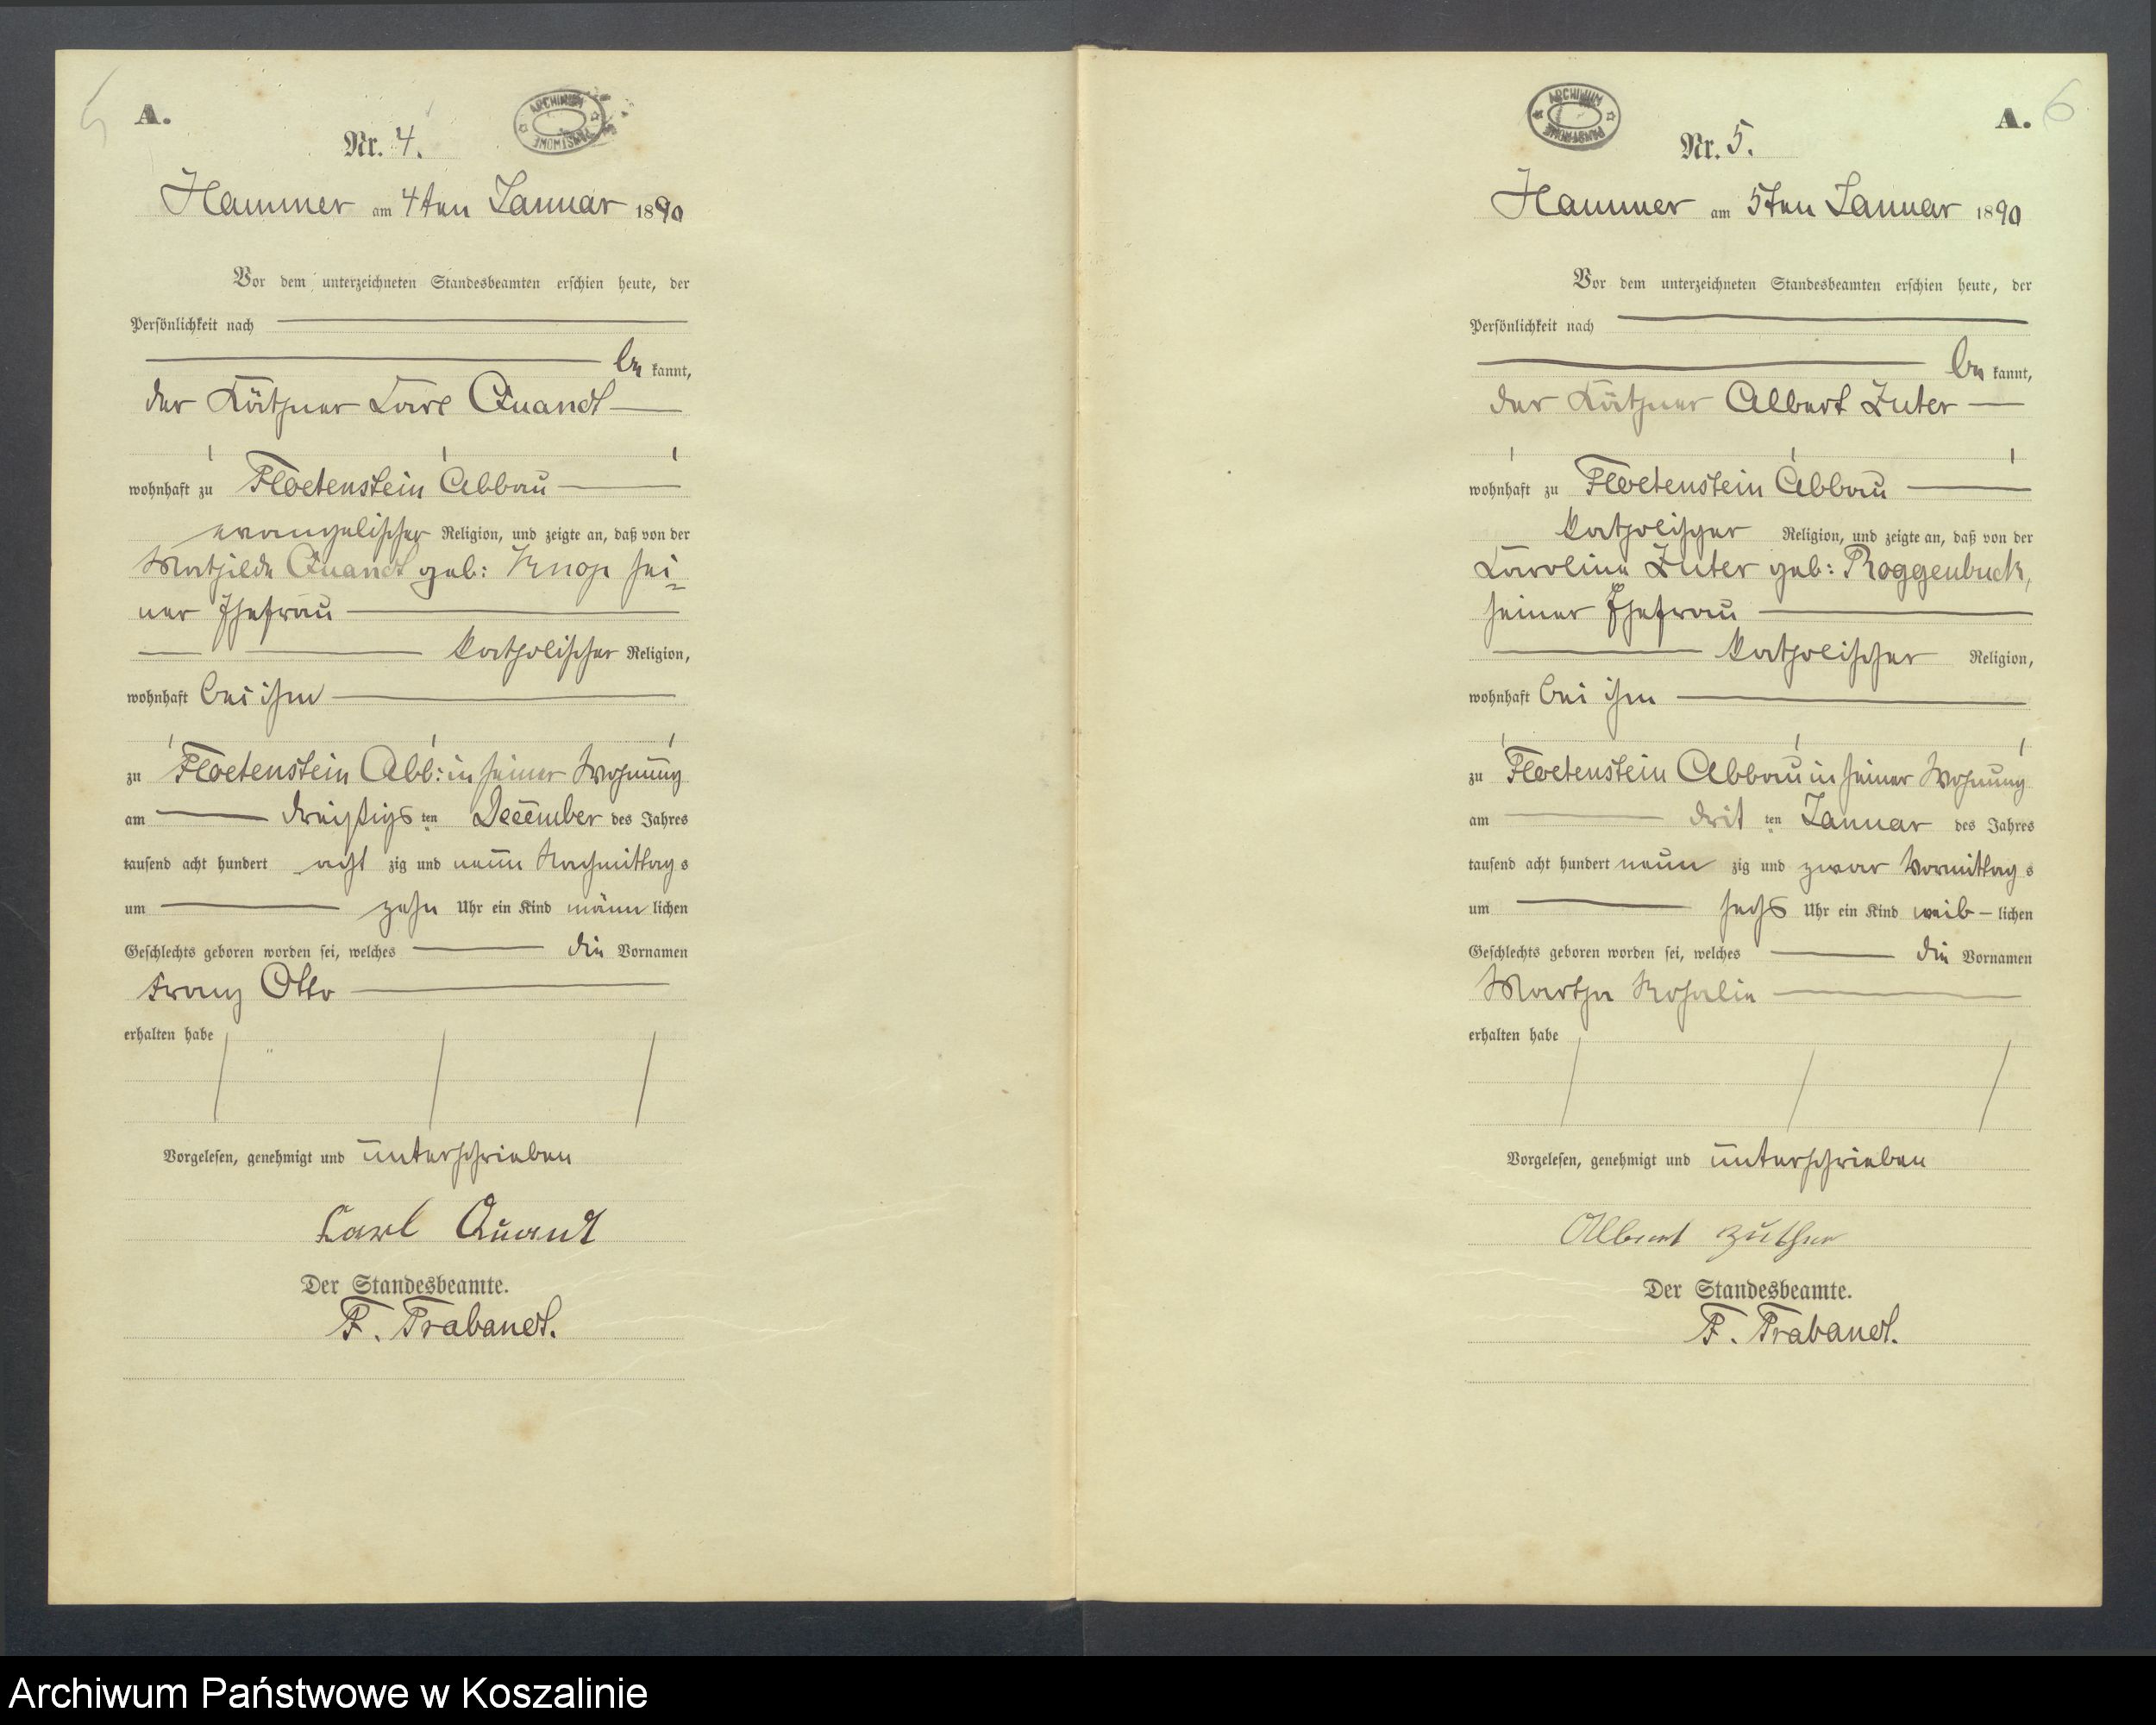 5
A.
Nr. 4.
ARCHIWUM PAŃSTWOWE
Hammer am 4ten Januar 1890
Vor dem unterzeichneten Standesbeamten erschien heute, der
Persönlichkeit nach
be kannt,
der Käthner Carl Quandt
wohnhaft zu Floetenstein Abbau
evangelischer Religion, und zeigte an, daß von der
Mathilde Quandt geb: Knop sei=
ner Ehefrau
katholischer Religion,
wohnhaft bei ihm
zu Floetenstein Abb: in seiner Wohnung
am dreißigs ten December des Jahres
tausend acht hundert acht zig und neun Nachmittag s
um zehn Uhr ein Kind männ lichen
Geschlechts geboren worden sei, welches die Vornamen
Franz Otto
erhalten habe
Vorgelesen, genehmigt und unterschrieben
Carl Quandt
Der Standesbeamte.
F. Trabandt.
6
A.
ARCHIWUM PAŃSTWOWE
Nr. 5.
Hammer am 5ten Januar 1890
Vor dem unterzeichneten Standesbeamten erschien heute, der
Persönlichkeit nach
be kannt,
der Käthner Albert Zuter
wohnhaft zu Floetenstein Abbau
katholischer Religion, und zeigte an, daß von der
Caroline Zuter geb: Roggenbuck,
seiner Ehefrau
katholischer Religion,
wohnhaft bei ihm
zu Floetenstein Abbau in seiner Wohnung
am drit ten Januar des Jahres
tausend acht hundert neun zig und zwar Vormittag s
um sechs Uhr ein Kind weib – lichen
Geschlechts geboren worden sei, welches die Vornamen
Martha Rosalie
erhalten habe
Vorgelesen, genehmigt und unterschrieben
Albert Zuther
Der Standesbeamte.
F. Trabandt.
Archiwum Państwowe w Koszalinie